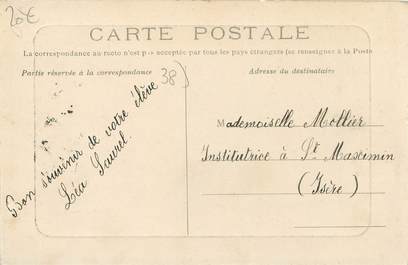 20€
CARTE POSTALE
La correspondance au recto n'est pas acceptée par tous les pays étrangers (se renseigner à la Poste
Partie réservée à la correspondance
Adresse du destinataire
38)
Bon souvenir de votre élève
Léa Saurel.
Mademoiselle Mollier
Institutrice à St Maximin
(Isère)